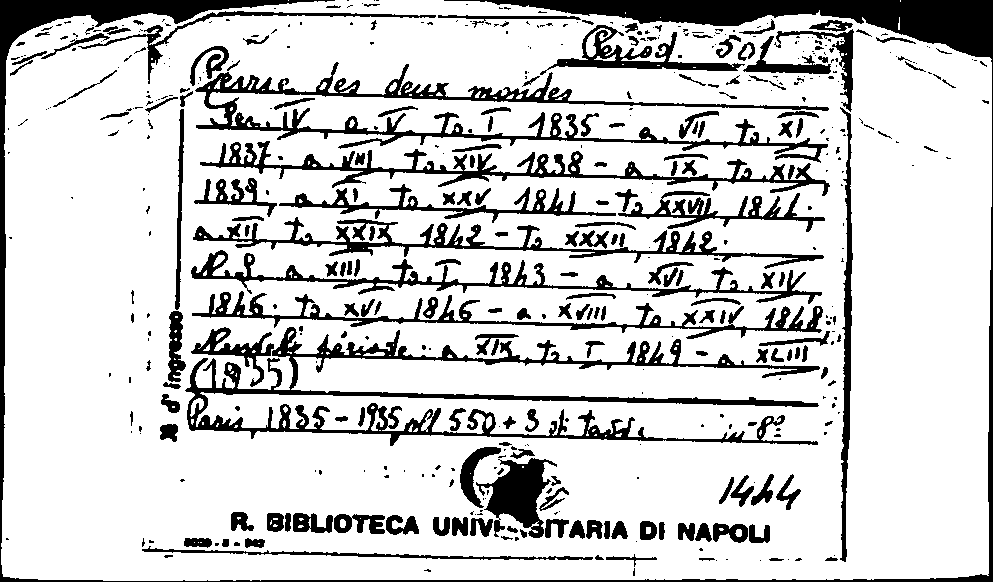 Period. 501
Revue des deux mondes
Per. IV, a. V, To. I, 1835 - a. VII, to. XI,
1837; a. VIII, to. XIV, 1838 - a. IX, To. XIX,
1839; a. XI, to. XXV, 1841 - To XXVII, 1841;
a. XII, To. XXIX, 1842 - To XXXII, 1842;
N. S. a. XIII, to. I, 1843 - a. XVI, To. XIV,
1846; to. XVI, 1846 - a. XVIII, to. XXIV, 1848;
période: a. XIX, to. I, 1849 - a. XLIII,
(1935)
Paris, 1835 - 1935, 550 + 3 di in-8º
N d'ingresso
1444
R. BIBLIOTECA UNIVERSITARIA DI NAPOLI